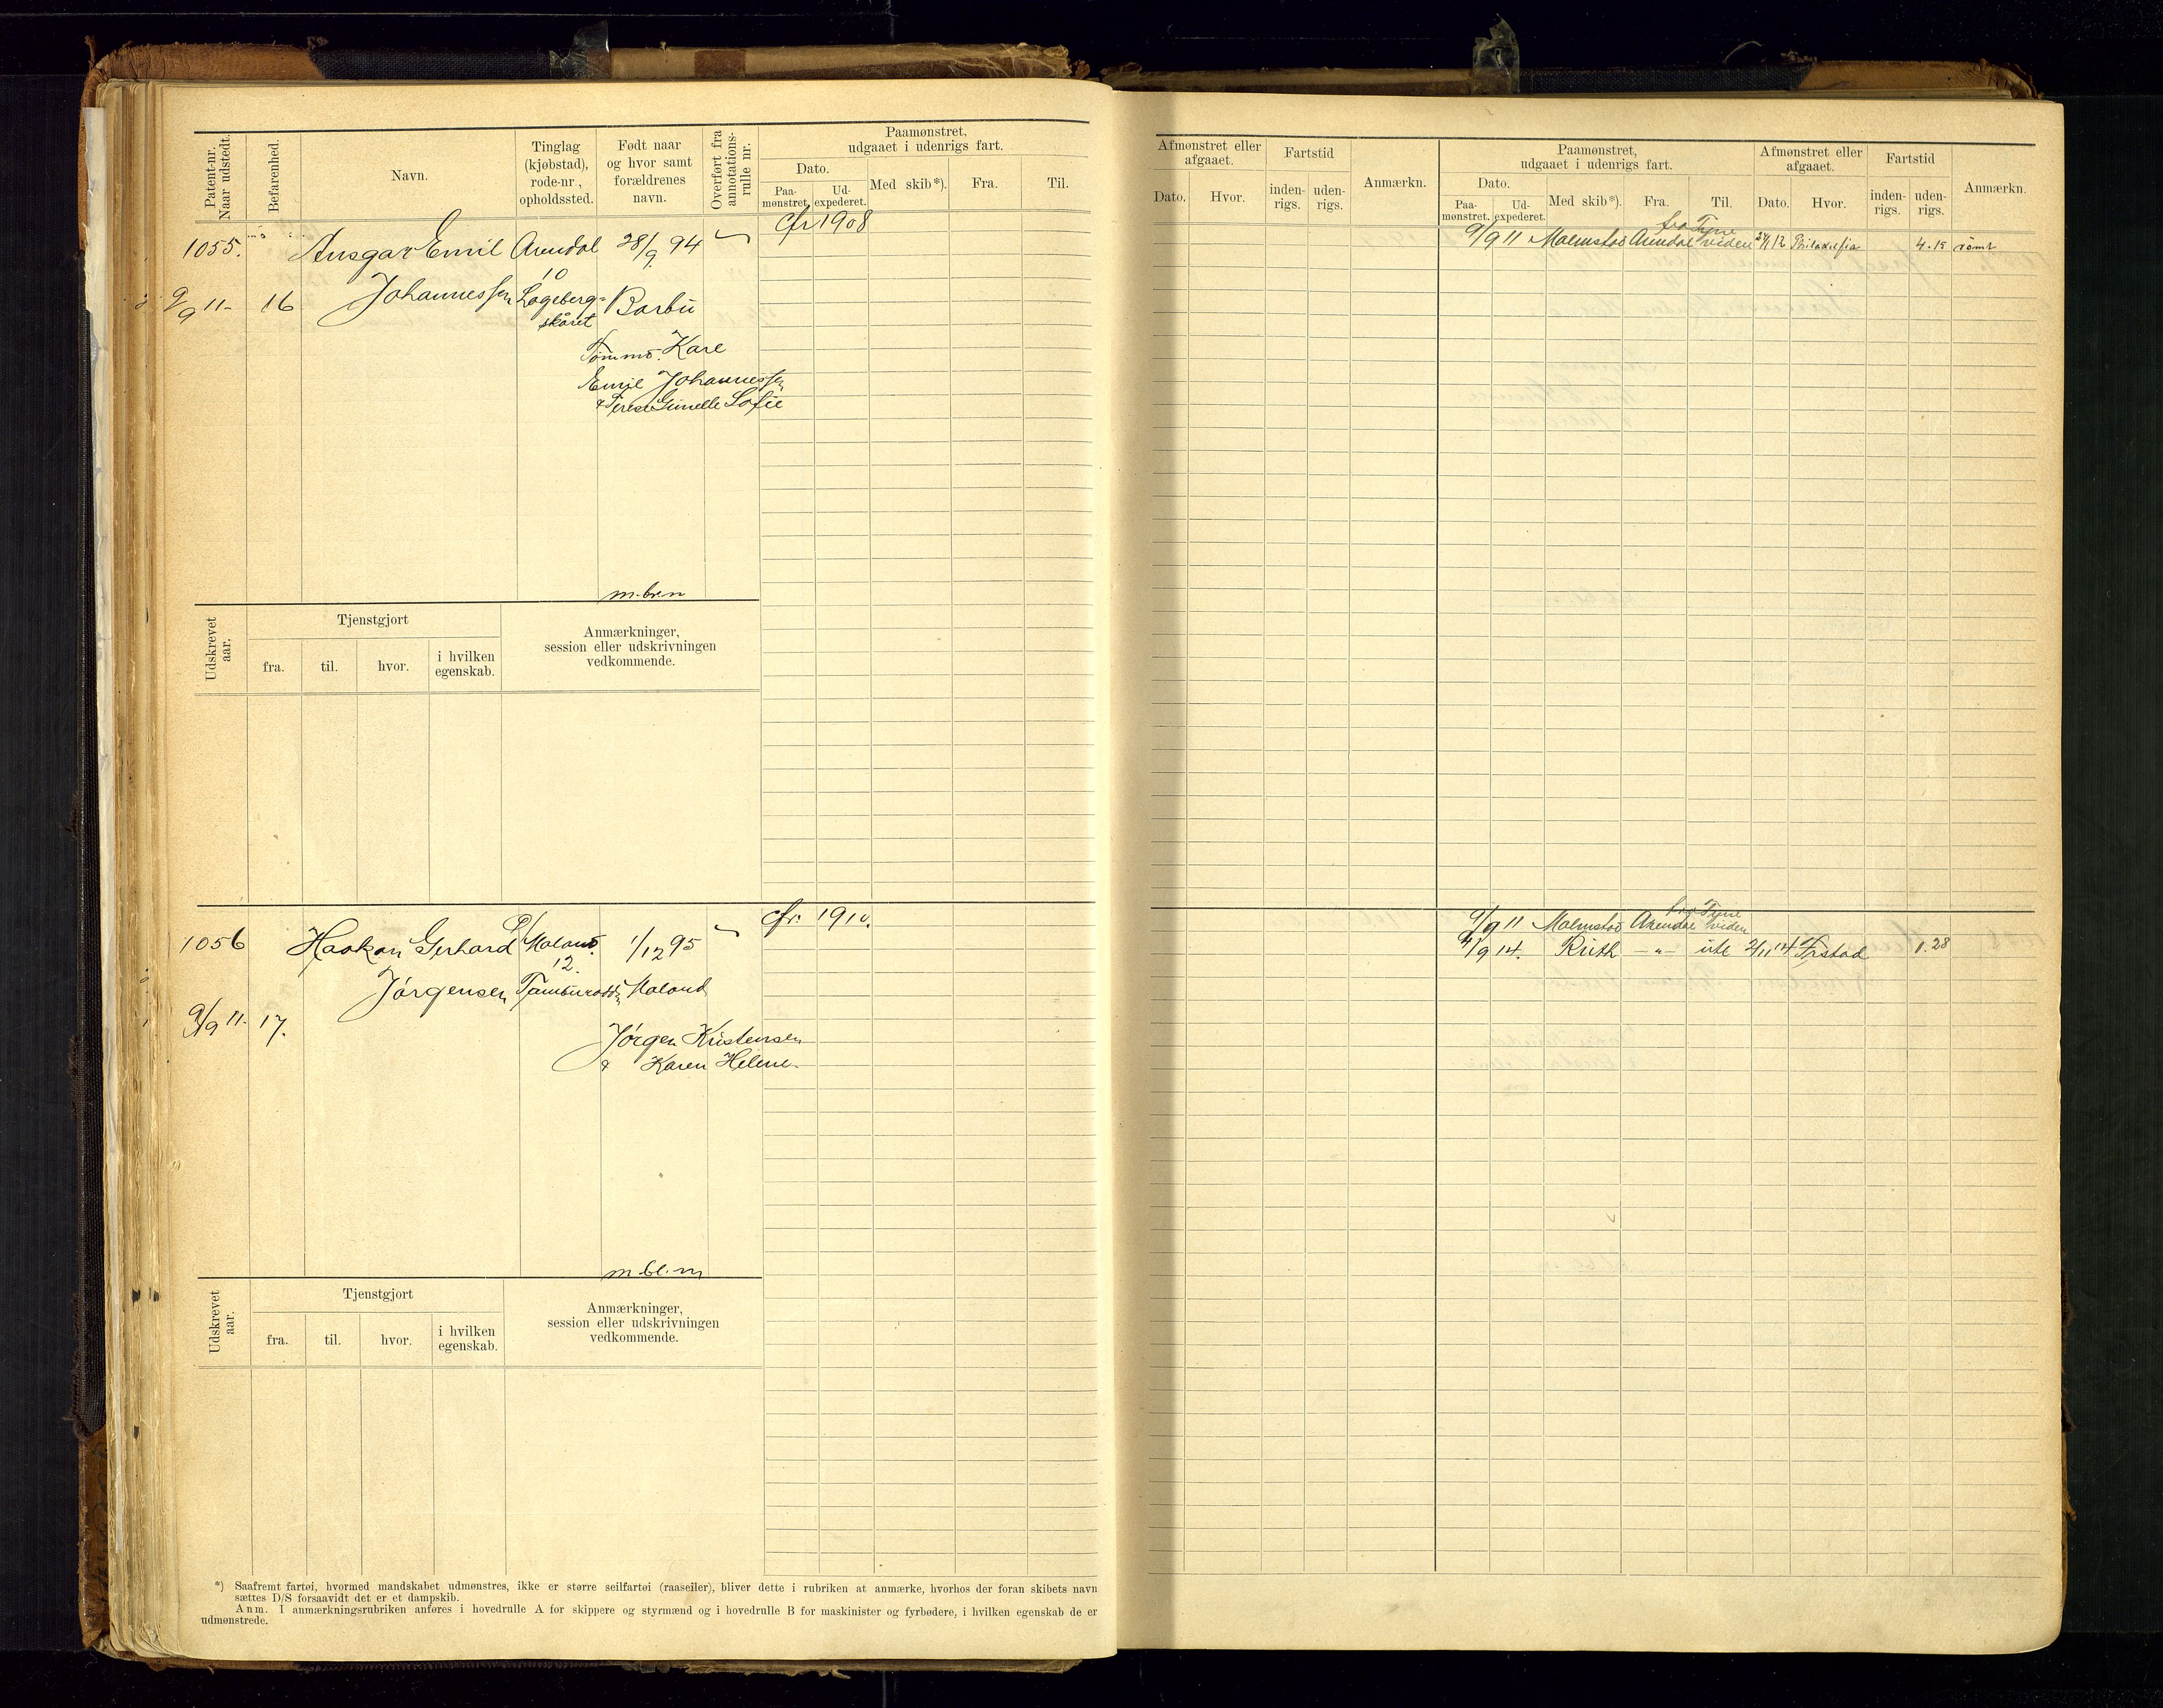 Patent-nr. Naar udstedt.
Befarenhed.
Navn.
Tinglag (kjøbstad), rode-nr., opholdssted.
Født naar og hvor samt forældrenes navn.
Overført fra annotations-rulle nr.
Paamønstret, udgaaet i udenrigs fart.
Dato.
Paa-mønstret.
Ud-expederet.
Med skib*).
Fra.
Til.
Afmønstret eller afgaaet.
Dato.
Hvor.
Fartstid
inden-rigs.
uden-rigs.
Anmærkn.
Paamønstret, udgaaet i udenrigs fart.
Dato.
Paa-mønstret.
Ud-expederet.
Med skib*).
Fra.
Til.
Afmønstret eller afgaaet.
Dato.
Hvor.
Fartstid
inden-rigs.
uden-rigs.
Anmærkn.
cfr 1908
1055. Ansgar Emil Arendal 28/9 94
10
9/9 11- 16 Johannessen Barbu
skåret
Tømmo. Kare
Emil Johannessen
Sofie
fra Tyne
9/9 11 Malmstø Arendal viden Philadelfia 4.15 rømt
Udskrevet aar.
Tjenstgjort
fra.
til.
hvor.
i hvilken egenskab.
Anmærkninger, session eller udskrivningen vedkommende.
cfr. 1910.
1056 Haakon Gerhard Ø/Moland. 1/12 95
12.
Jørgensen Moland
9/9 11. 17.
Jørgen Kristensen
& Karen Helene.
fra Tyne
9/9 11 Malmstø Arendal viden
/9 14. Ruth -"- ute 2/11 14 Frstad 1.28
Udskrevet aar.
Tjenstgjort
fra.
til.
hvor.
i hvilken egenskab.
Anmærkninger, session eller udskrivningen vedkommende.
*) Saafremt fartøi, hvormed mandskabet udmønstres, ikke er større seilfartøi (raaseiler), bliver dette i rubriken at anmærke, hvorhos der foran skibets navn
sættes D/S forsaavidt det er et dampskib.
Anm. I anmærkningsrubriken anføres i hovedrulle A for skippere og styrmænd og i hovedrulle B for maskinister og fyrbødere, i hvilken egenskab de er
udmønstrede.